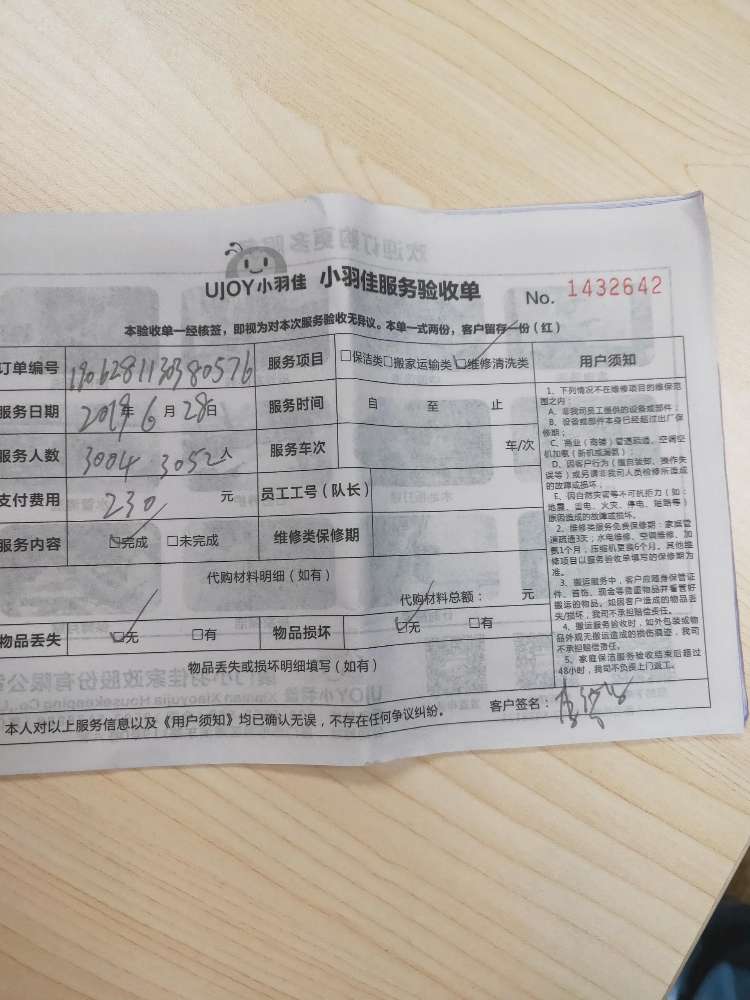 UJOY小羽佳 小羽佳服务验收单 No. 1432642
本验收单一经核签，即视为对本次服务验收无异议。本单一式两份，客户留存一份（红）
订单编号 服务项目 □保洁类□搬家运输类□维修清洗类 用户须知
服务日期 2019年6月28日 服务时间 自 至 止
服务人数 3004 3052人 服务车次 车/次
支付费用 230 元 员工工号（队长）
服务内容 □完成 □未完成 维修类保修期
代购材料明细（如有）
代购材料总额： 元
物品丢失 □无 □有 物品损坏 □无 □有
物品丢失或损坏明细填写（如有）
本人对以上服务信息以及《用户须知》均已确认无误，不存在任何争议纠纷。 客户签名：
1、下列情况不在维修项目的维保范
围之内：
A、非我司员工提供的设备或部件；
B、设备或部件本身已经超过出厂保
修期；
C、商业（商铺）管道疏通、空调空
机加氨（新机或漏氨）；
D、因客户行为（擅自装卸、操作失
误等）或另请非我司人员检修所造成
的故障或损坏；
E、因自然灾害等不可抗拒力（如：
地震、雷电、火灾、停电、短路等）
原因造成的故障或损坏。
2、维修类服务免费保修期：家庭管
道疏通3天；水电维修、空调维修、加
氨1个月；压缩机更换6个月。其他维
修项目以服务验收单填写的保修期为
准。
3、搬运服务中，客户应随身保管证
件、首饰、现金等贵重物品并看管好
搬运的物品。如因客户造成的物品丢
失/损坏，我司不承担赔偿责任。
4、搬运服务验收时，如外包装或物
品外观无搬运造成的损伤痕迹，我司
不承担赔偿责任。
5、家庭保洁服务验收结束后超过
48小时，我司不负责上门返工。